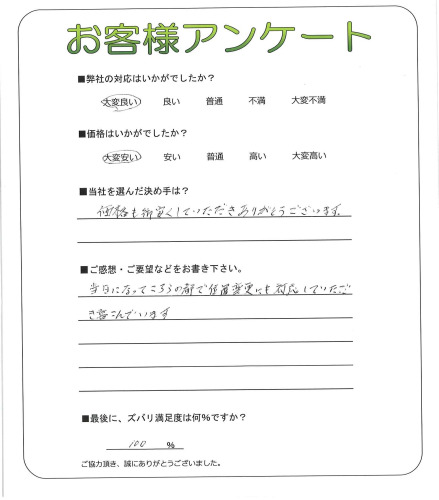 お客様アンケート
■弊社の対応はいかがでしたか?
大変良い 良い 普通 不満 大変不満
■価格はいかがでしたか?
大変安い 安い 普通 高い 大変高い
■当社を選んだ決め手は?
価格も御安くしていただきありがとうございます。
■ご感想・ご要望などをお書き下さい。
当日になってこちらの都で位置変更にも対応していただ
き喜こんでいます
■最後に、ズバリ満足度は何%ですか?
100 %
ご協力頂き、誠にありがとうございました。